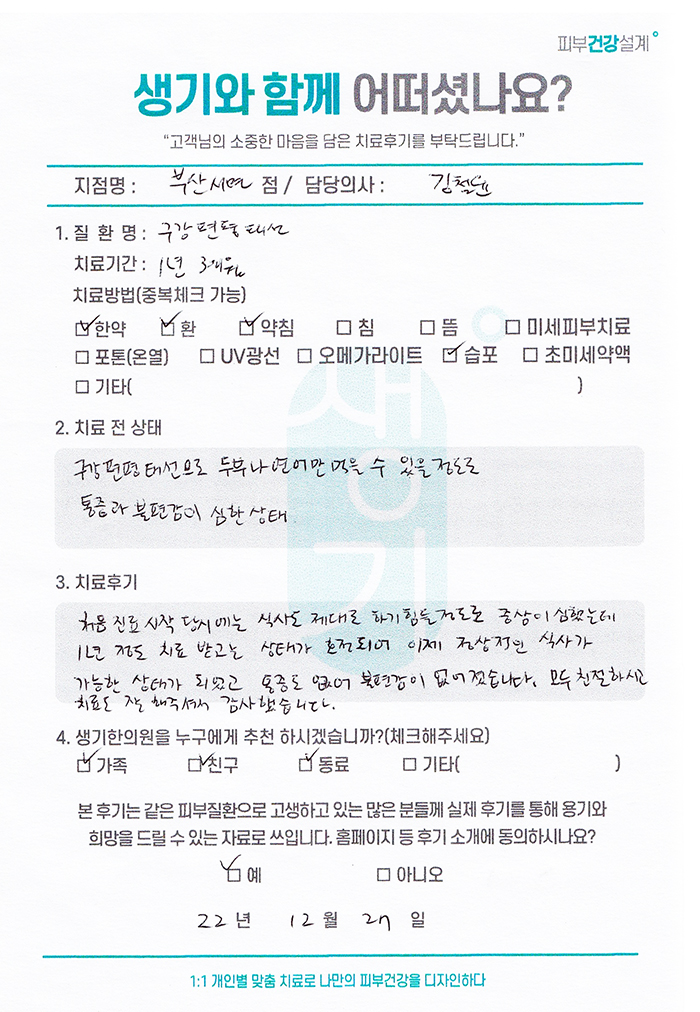 피부건강설계
생기와 함께 어떠셨나요?
“고객님의 소중한 마음을 담은 치료후기를 부탁드립니다.”
지점명 : 부산서면 점 / 담당의사 : 김철윤
1. 질 환 명 : 구강편평태선
치료기간 : 1년 3개월
치료방법(중복체크 가능)
☑ 한약 ☑ 환 ☑ 약침 □ 침 □ 뜸 □ 미세피부치료
□ 포톤(온열) □ UV광선 □ 오메가라이트 ☑ 습포 □ 초미세약액
□ 기타( )
2. 치료 전 상태
구강편평태선으로 두부나 연어만 먹을 수 있을 정도로
통증과 불편감이 심한 상태.
3. 치료후기
처음 진료 시작 당시에는 식사도 제대로 하기 힘들 정도로 증상이 심했는데
1년 정도 치료 받고는 상태가 호전되어 이제 정상적인 식사가
가능한 상태가 되었고 통증도 없어 불편감이 없어졌습니다. 모두 친절하시고
치료도 잘 해주셔서 감사했습니다.
4. 생기한의원을 누구에게 추천 하시겠습니까?(체크해주세요)
☑ 가족 ☑ 친구 ☑ 동료 □ 기타( )
본 후기는 같은 피부질환으로 고생하고 있는 많은 분들께 실제 후기를 통해 용기와
희망을 드릴 수 있는 자료로 쓰입니다. 홈페이지 등 후기 소개에 동의하시나요?
☑ 예 □ 아니오
22 년 12 월 27 일
1:1 개인별 맞춤 치료로 나만의 피부건강을 디자인하다
생기